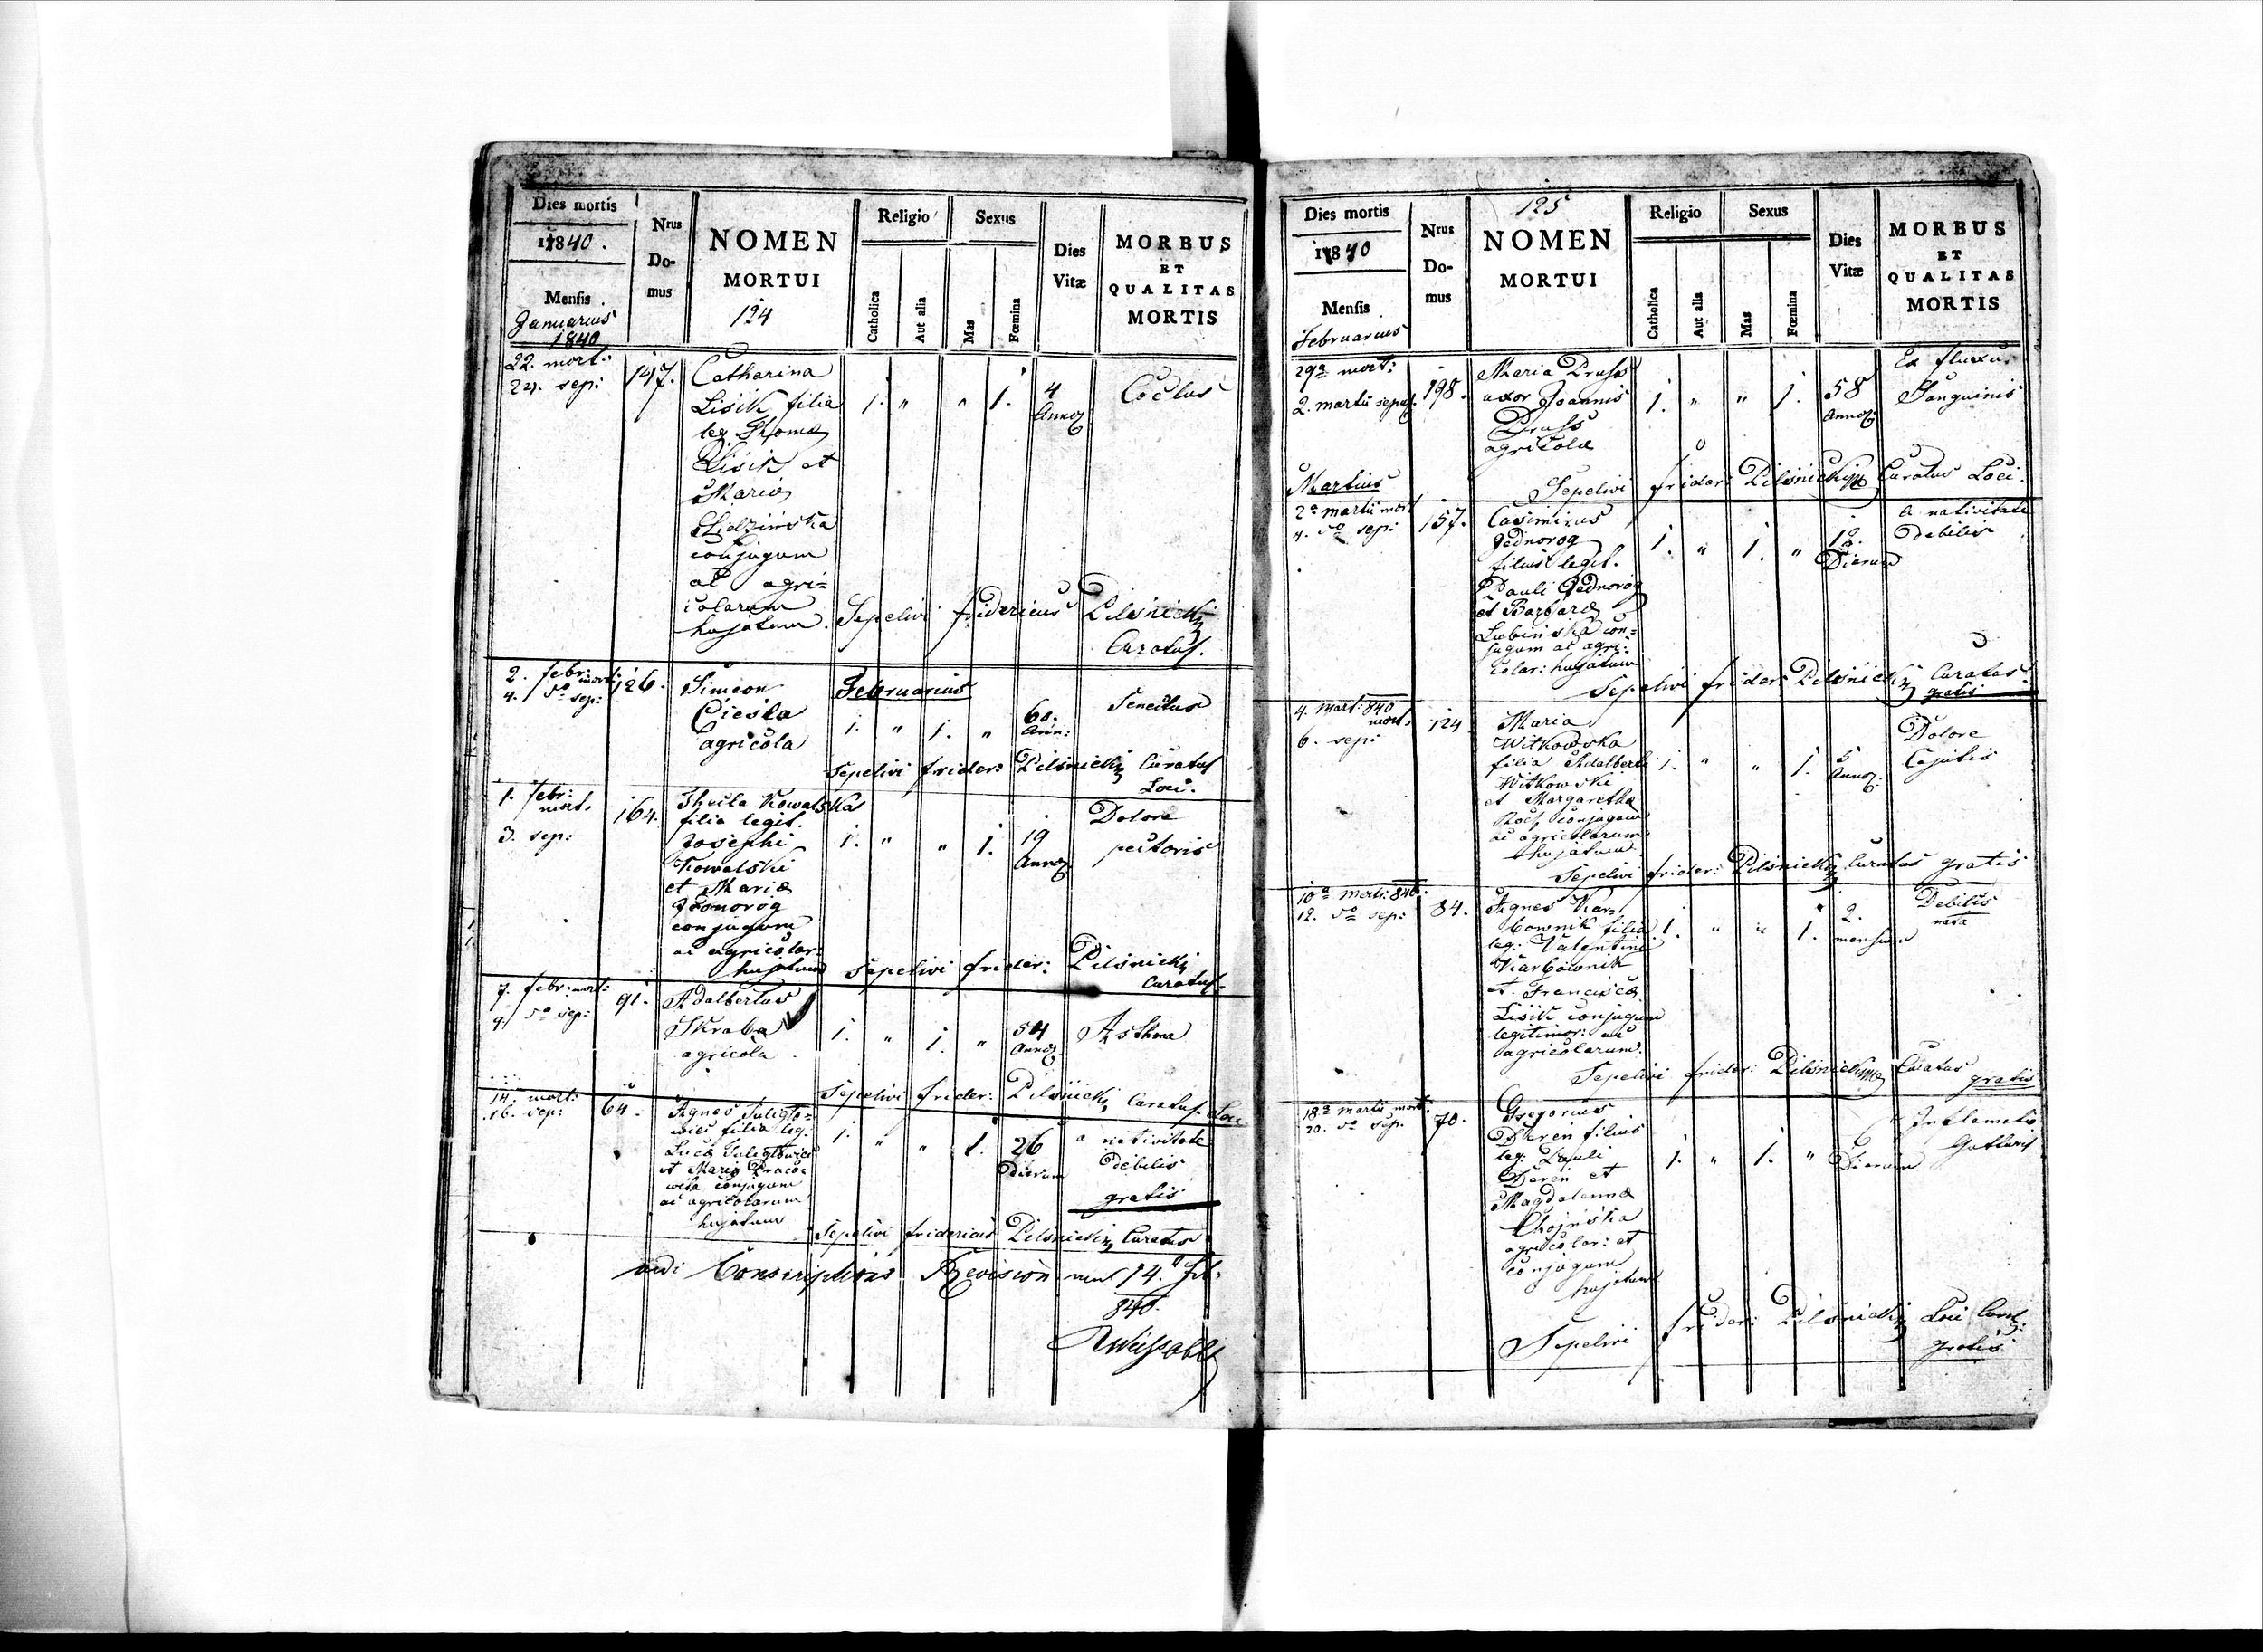 Dies mortis
1840.
Mensis
Januarius
1840
Nrus
Do-
mus
NOMEN
MORTUI
124
Religio
Catholica
Aut alia
Sexus
Mas
Fœmina
Dies
Vitæ
MORBUS
ET
QUALITAS
MORTIS
22. mort:
24. sep:
147.
Catharina
Lisik filia
leg Thoma
Lisik et
Maria
conjugum
ac agri=
colarum
hujatum.
1. " " 1.
4
Annor
Sepelivi fridericus Pilsnicki
Curatus.
2. febr: mort:
4. 5o sep:
126.
Simeon
Ciesla
agricola
Februarius
1. " 1. "
60.
Ann:
Senectus
Sepelivi frider: Pilsnicki Curatus
Loci.
1. febr:
mort.
3. sep:
164.
Thecla Kowalska
filia legit.
Josephi
Kowalski
et Mariæ
Jednorog
conjugum
ac agricolar:
hujatum
1. " " 1.
19
Annor
Dolore
pectoris
Sepelivi frider: Pilsnicki
Curatus.
7. febr: mort:
9. 5o sep:
91.
Adalbertus
Skraba
agricola
1. " 1. "
54
Annor.
Asthma
Sepelivi frider: Pilsnicki Curatus Loci
14. mort:
16. sep:
64.
Agnes Suligto=
wicz filia leg.
Luca Suligtowicz
et Maria
conjugum
ac agricolarum
hujatum
1. " " 1.
26
Dierum
a nativitate
debilis
gratis
Sepelivi fridericus Pilsnicki Curatus
Conscriptions Revision 14. Feb.
840.
Dies mortis
1840
Mensis
Februarius
Nrus
Do-
mus
125
NOMEN
MORTUI
Religio
Catholica
Aut alia
Sexus
Mas
Fœmina
Dies
Vitæ
MORBUS
ET
QUALITAS
MORTIS
29a mort:
2. martii sepul.
198.
Maria Pruss
uxor Joannis
Pruss
agricolæ
1. " " 1.
58
Annor
Ex fluxu
Sanguinis
Martius
Sepelivi frider: Pilsnicki Curatus Loci.
2a martii mort
4. 5o sep:
157.
Casimirus
Jednorog
filius legit.
Pauli Jednorog
et Barbaræ
Lubinska con=
jugum ac agri=
colar: hujatum
1. " 1. "
12.
Dierum
a nativitate
debilis
Sepelivi frider: Pilsnicki Curatus
gratis
4. mart: 840
mort.
6. sep:
124
Maria
Witkowska
filia Adalberti
Witkowski
et Margaretha
conjugum
ac agricolarum
hujatum
1. " " 1.
5
Annor.
Dolore
Capitis
Sepelivi frider: Pilsnicki Curatus gratis
10a marti: 840:
12. 5a sep:
84.
Agnes Kar=
bownik filia
leg: Valentini
Karbownik
et Francisca
Lisik conjugum
legitimor: ac
agricolarum.
1. " " 1.
2.
mensium
Debilis
nata
Sepelivi frider: Pilsnicki Curatus
gratis
18a martii mort:
20. 5a sep.
70.
Gregorius
Deren filius
leg: Pauli
Deren et
Magdalenæ
Chojnska
agricolar: et
conjugum
hujatum
1. " 1. "
6
Dierum
Sepelivi frider: Pilsnicki Loci Curat:
gratis